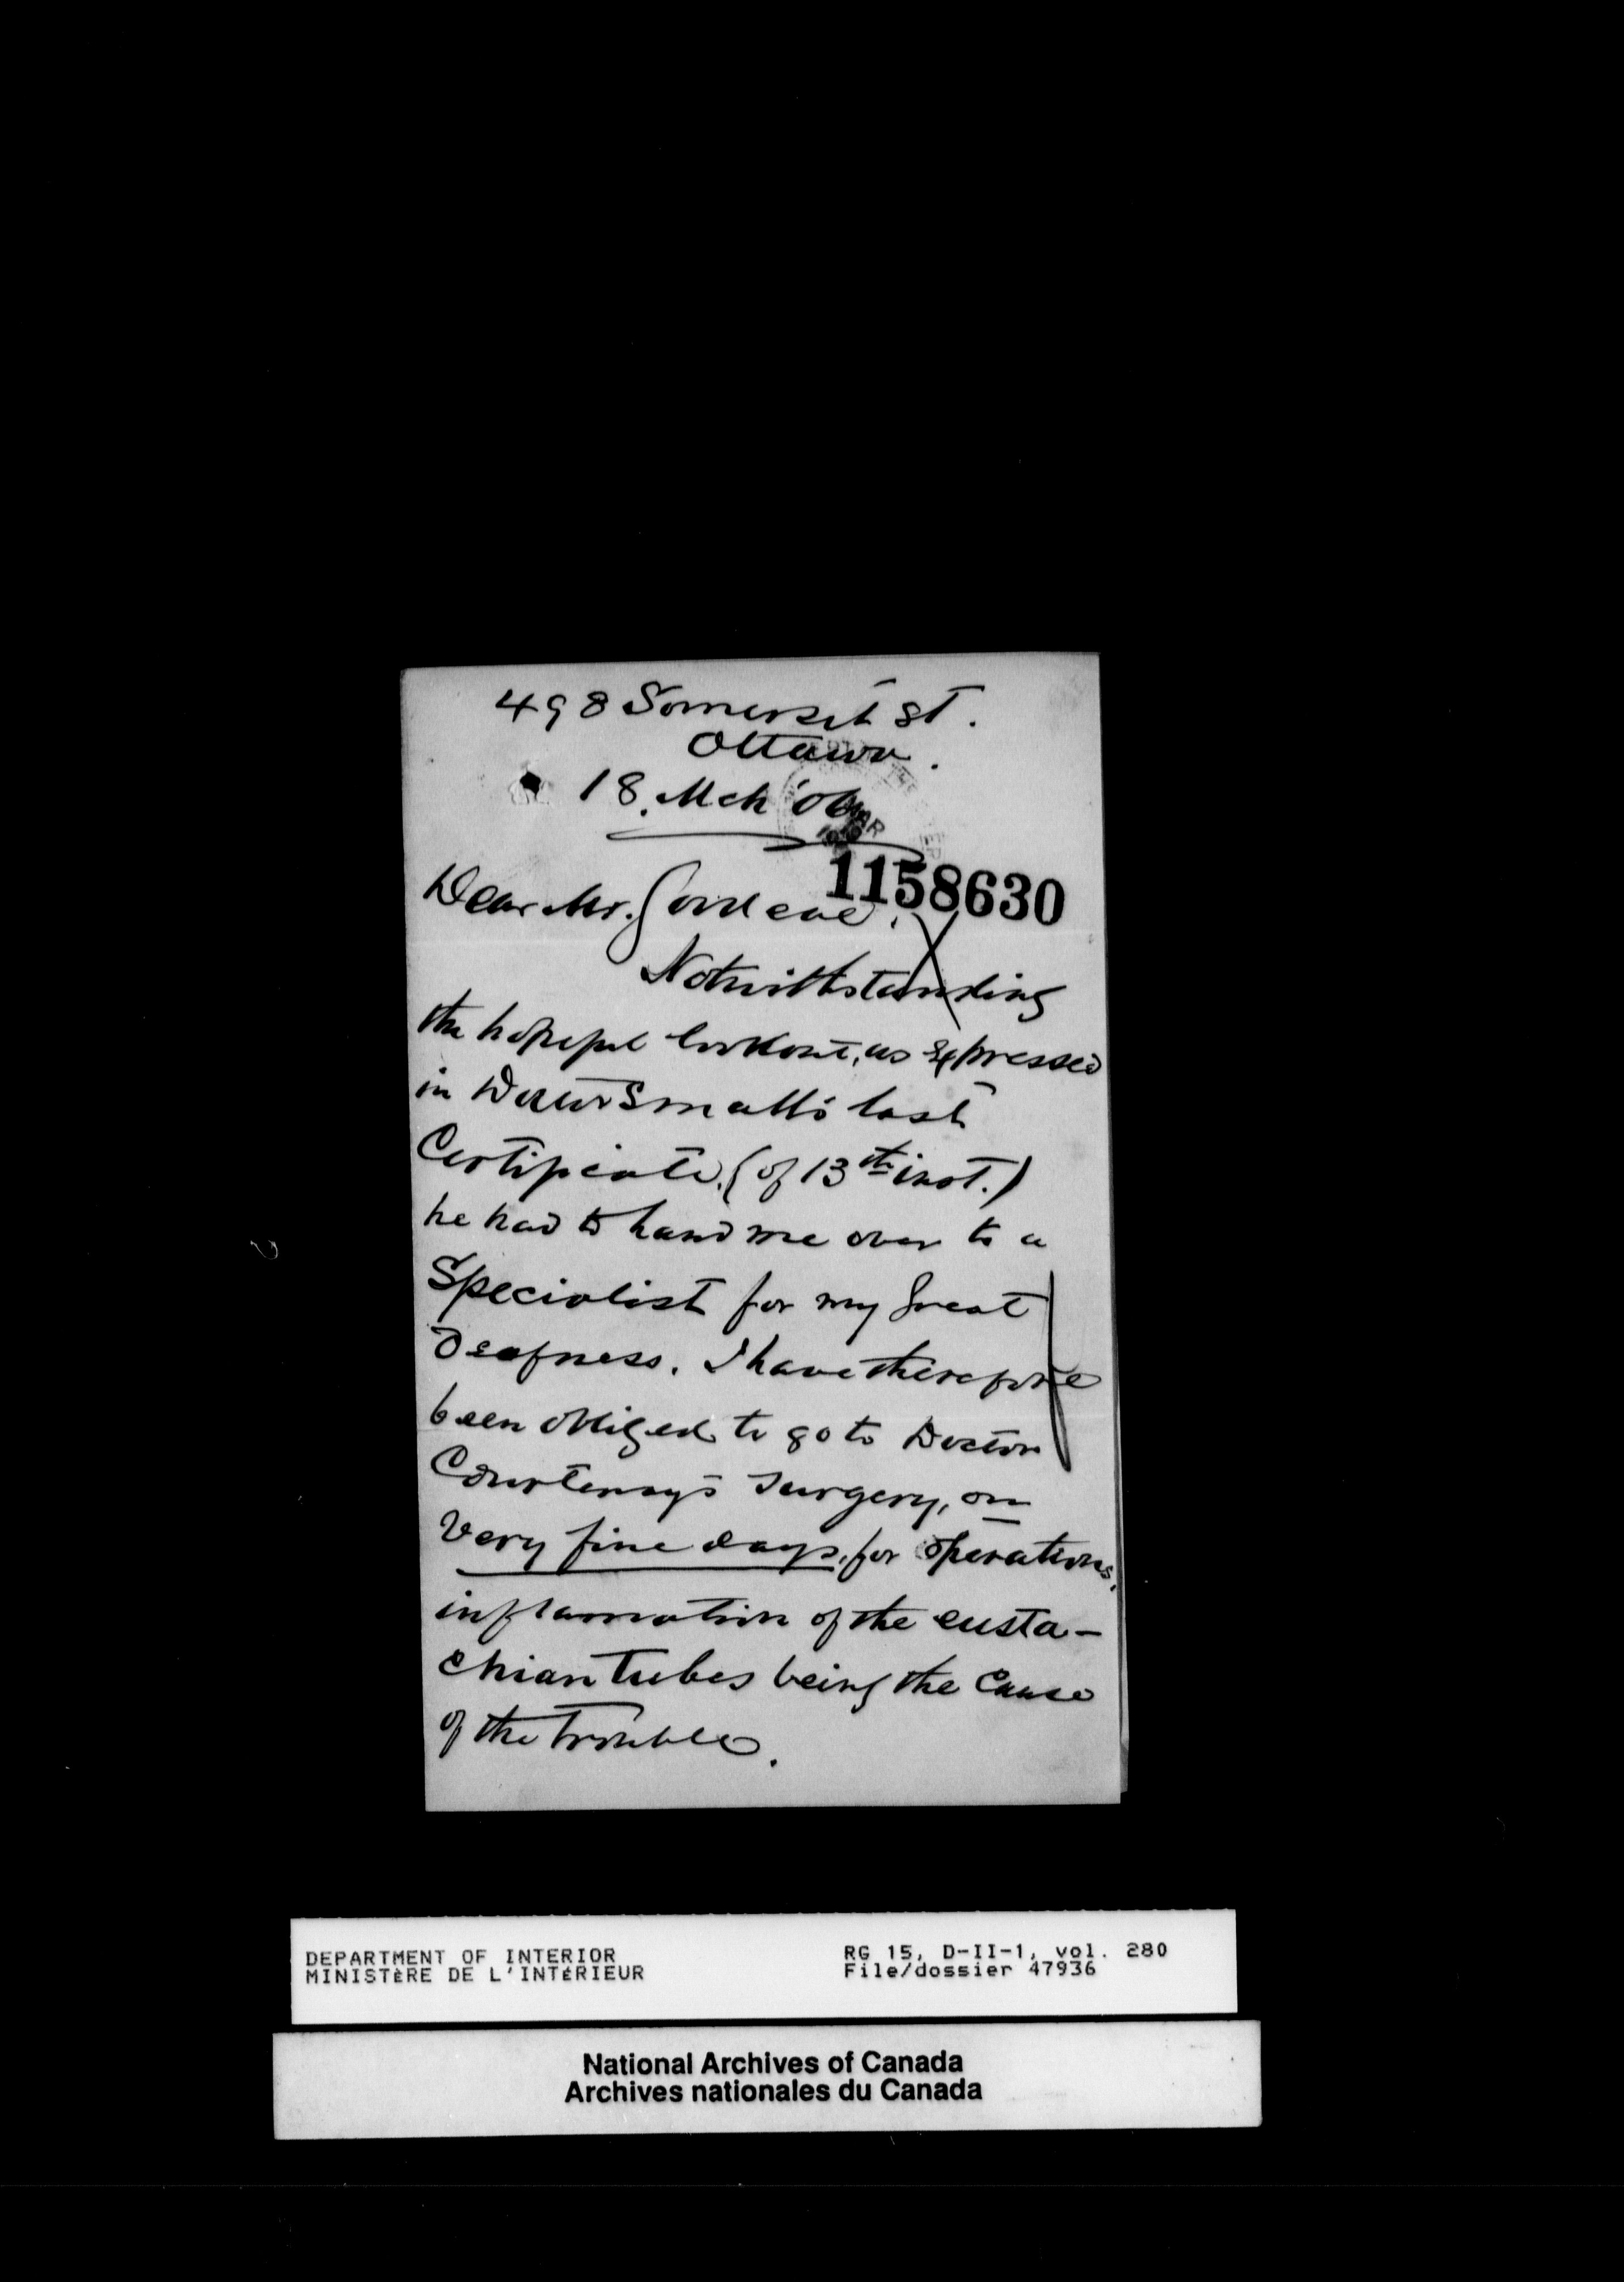 498 Somerset St.
Ottawa.
18. Mch '06
MAR
1158630
Dear Mr. Goodeve.
Notwithstanding
the hopeful lookout, as expressed
in Doctor Small's last
Certificate, (of 13th inst.)
he had to hand me over to a
Specialist for my great
deafness. I have therefore
been obliged to go to Doctor
Courtenay's surgery, on
very fine days, for operations,
inflamation of the eusta-
chian tubes being the cause
of the trouble.
DEPARTMENT OF INTERIOR
MINISTÈRE DE L'INTÉRIEUR
RG 15, D-II-1, vol. 280
File/dossier 47936
National Archives of Canada
Archives nationales du Canada